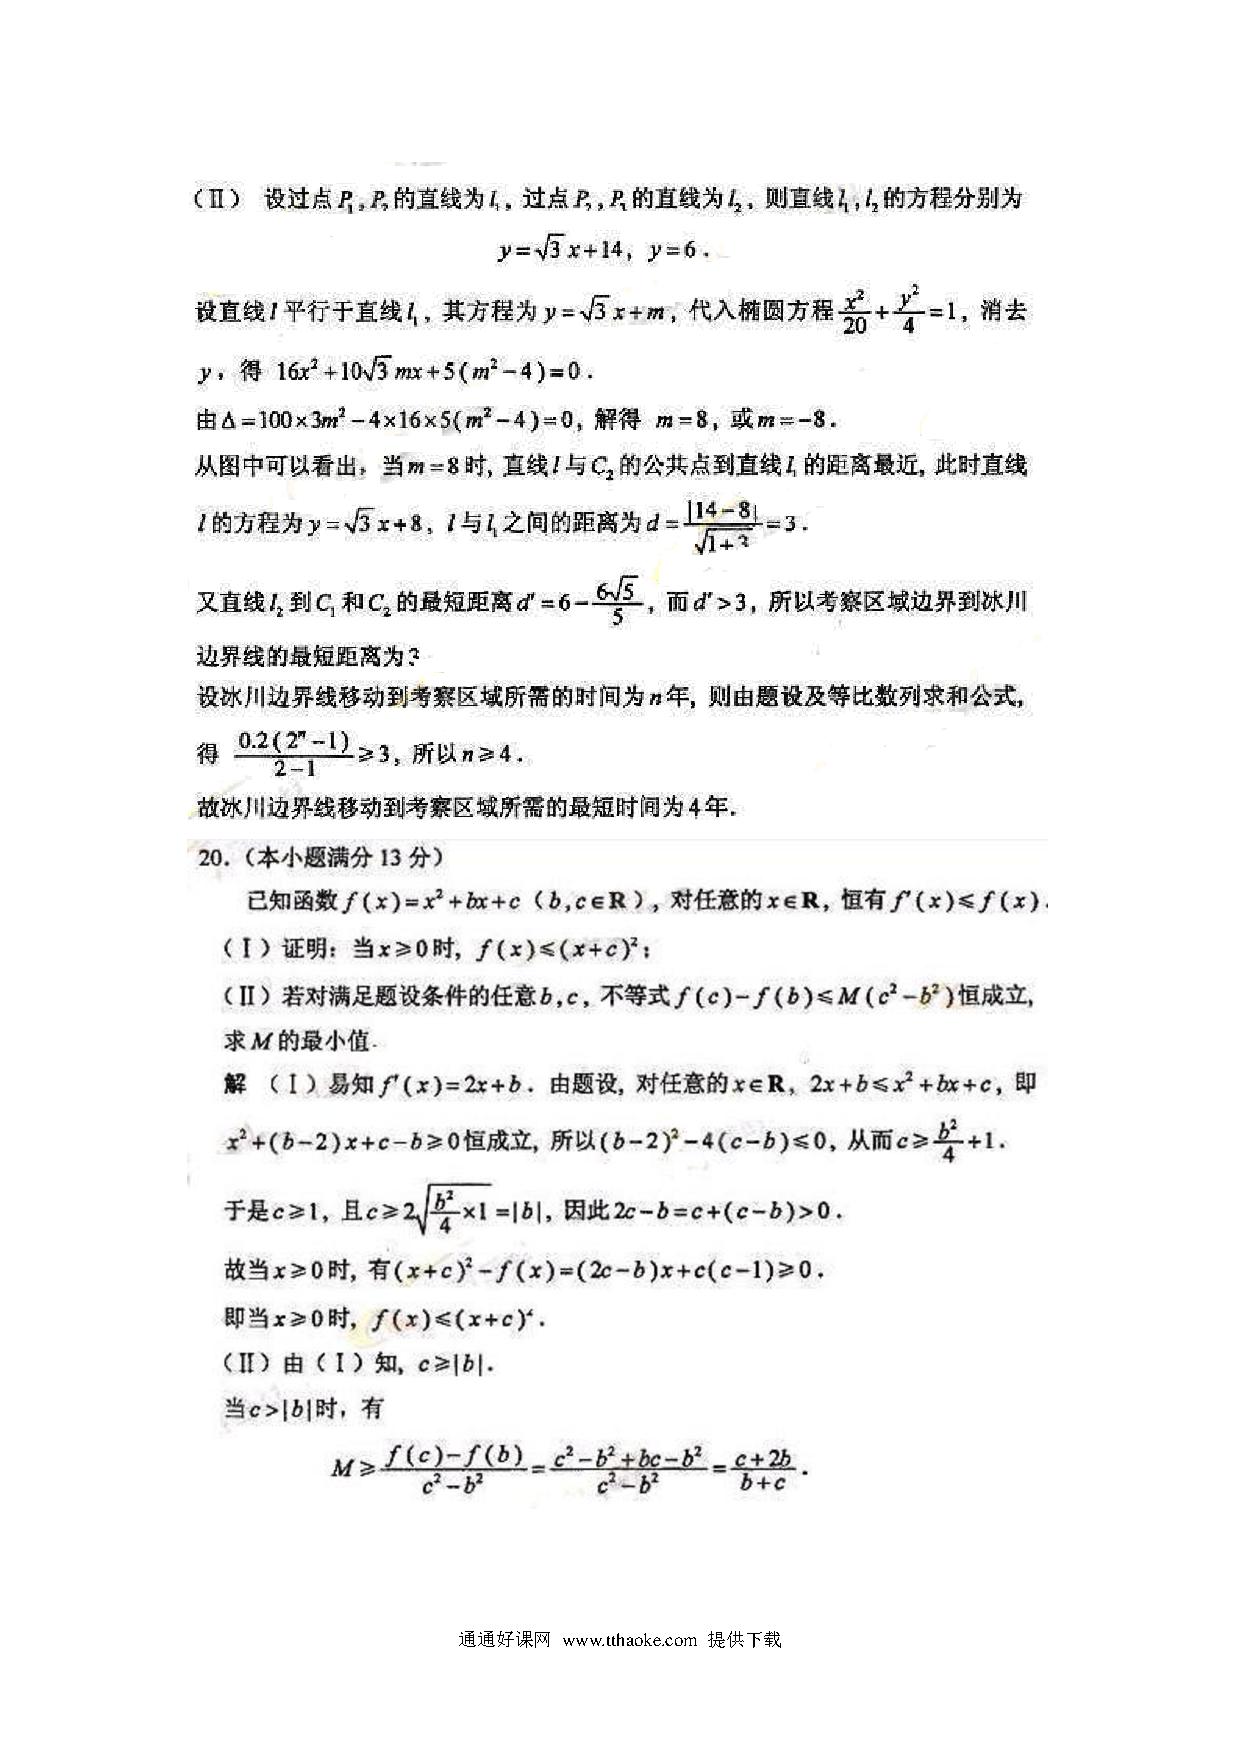 （Ⅱ） 设过点P₁,P₂的直线为l₁，过点P₂,P₃的直线为l₂，则直线l₁,l₂的方程分别为
y=√3x+14，y=6．
设直线l平行于直线l₁，其方程为y=√3x+m，代入椭圆方程x²/20+y²/4=1，消去
y，得 16x²+10√3mx+5(m²-4)=0．
由Δ=100×3m²-4×16×5(m²-4)=0，解得 m=8，或m=-8．
从图中可以看出，当m=8时，直线l与C₂的公共点到直线l₁的距离最近，此时直线
l的方程为y=√3x+8，l与l₁之间的距离为d=|14-8|/√(1+3)=3．
又直线l₂到C₁和C₂的最短距离d′=6-6√5/5，而d′>3，所以考察区域边界到冰川
边界线的最短距离为3
设冰川边界线移动到考察区域所需的时间为n年，则由题设及等比数列求和公式，
得 0.2(2ⁿ-1)/(2-1)≥3，所以n≥4．
故冰川边界线移动到考察区域所需的最短时间为4年．
20．（本小题满分13分）
已知函数f(x)=x²+bx+c（b,c∈R），对任意的x∈R，恒有f′(x)≤f(x)．
（Ⅰ）证明：当x≥0时，f(x)≤(x+c)²；
（Ⅱ）若对满足题设条件的任意b,c，不等式f(c)-f(b)≤M(c²-b²)恒成立，
求M的最小值．
解 （Ⅰ）易知f′(x)=2x+b．由题设，对任意的x∈R，2x+b≤x²+bx+c，即
x²+(b-2)x+c-b≥0恒成立，所以(b-2)²-4(c-b)≤0，从而c≥b²/4+1．
于是c≥1，且c≥2√(b²/4×1)=|b|，因此2c-b=c+(c-b)>0．
故当x≥0时，有(x+c)²-f(x)=(2c-b)x+c(c-1)≥0．
即当x≥0时，f(x)≤(x+c)²．
（Ⅱ）由（Ⅰ）知，c≥|b|．
当c>|b|时，有
M≥(f(c)-f(b))/(c²-b²)=(c²-b²+bc-b²)/(c²-b²)=(c+2b)/(b+c)．
通通好课网 www.tthaoke.com 提供下载